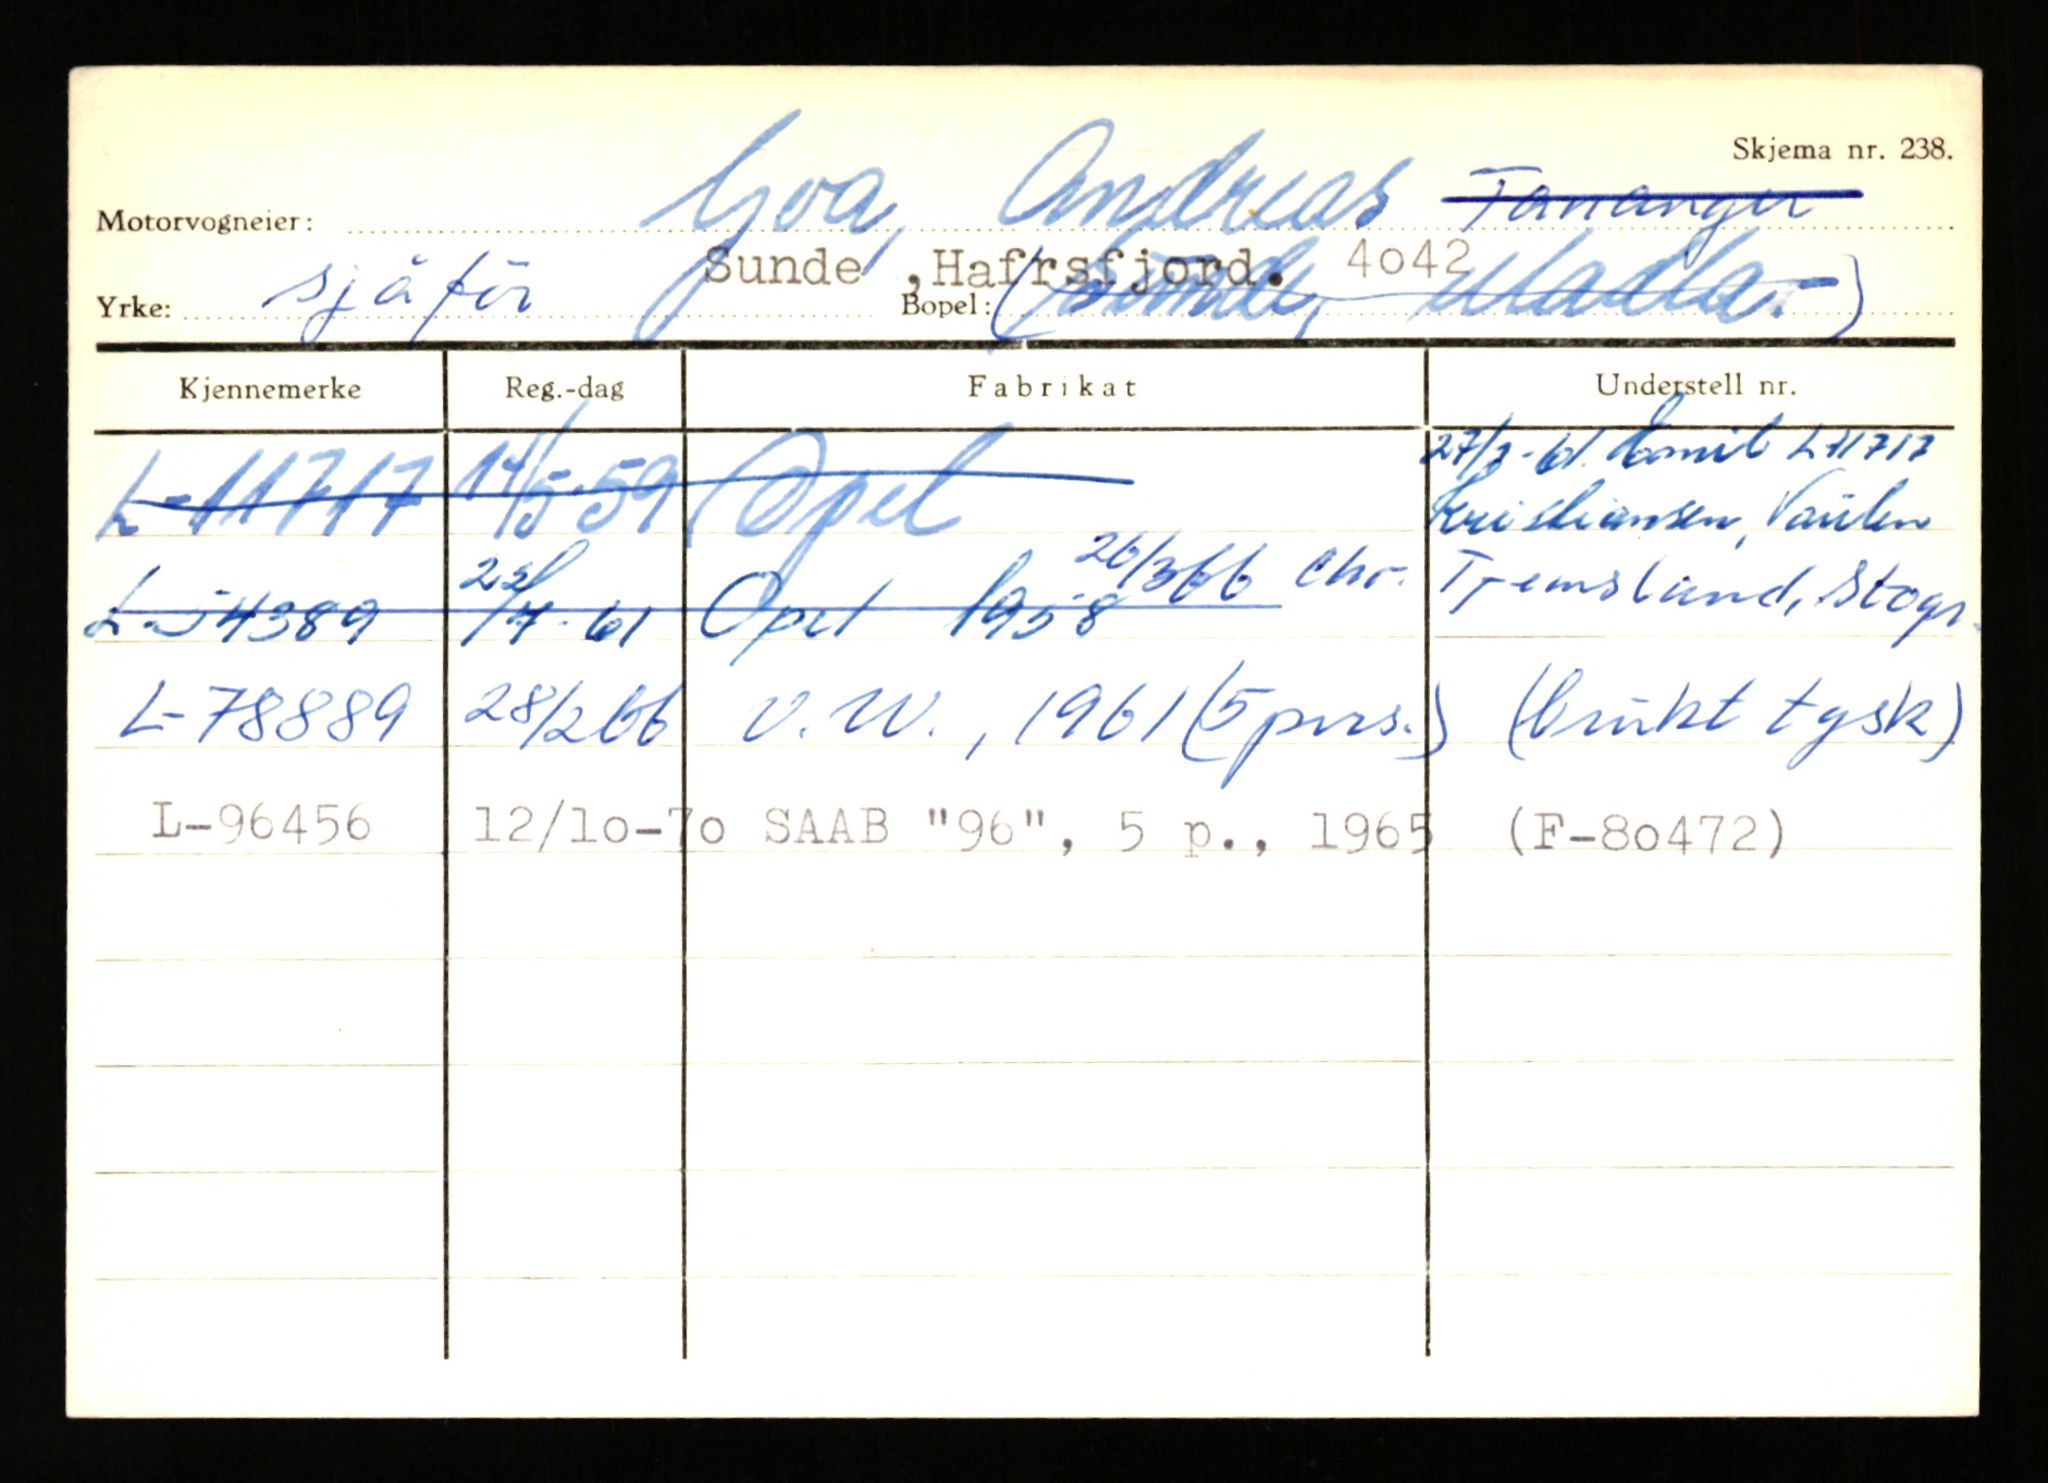 Skjema nr. 238.
Motorvogneier: Goa, Andreas Tananger
Sunde ,Hafrsfjord. 4042
Yrke: sjåför Bopel: (Sunde, Madla.-)
Kjennemerke Reg.-dag Fabrikat Understell nr.
L-11717 14/5-59 Opel 27/7-61. Emil L-11717
Kristiansen, Vaulen
L-54389 22/7-61 Opel 1958 26/3 66 Chr. Tjemsland, Stogr.
L-78889 28/2 66 V.W., 1961 (5 pers.) (brukt tysk)
L-96456 12/10-70 SAAB "96", 5 p., 1965 (F-80472)